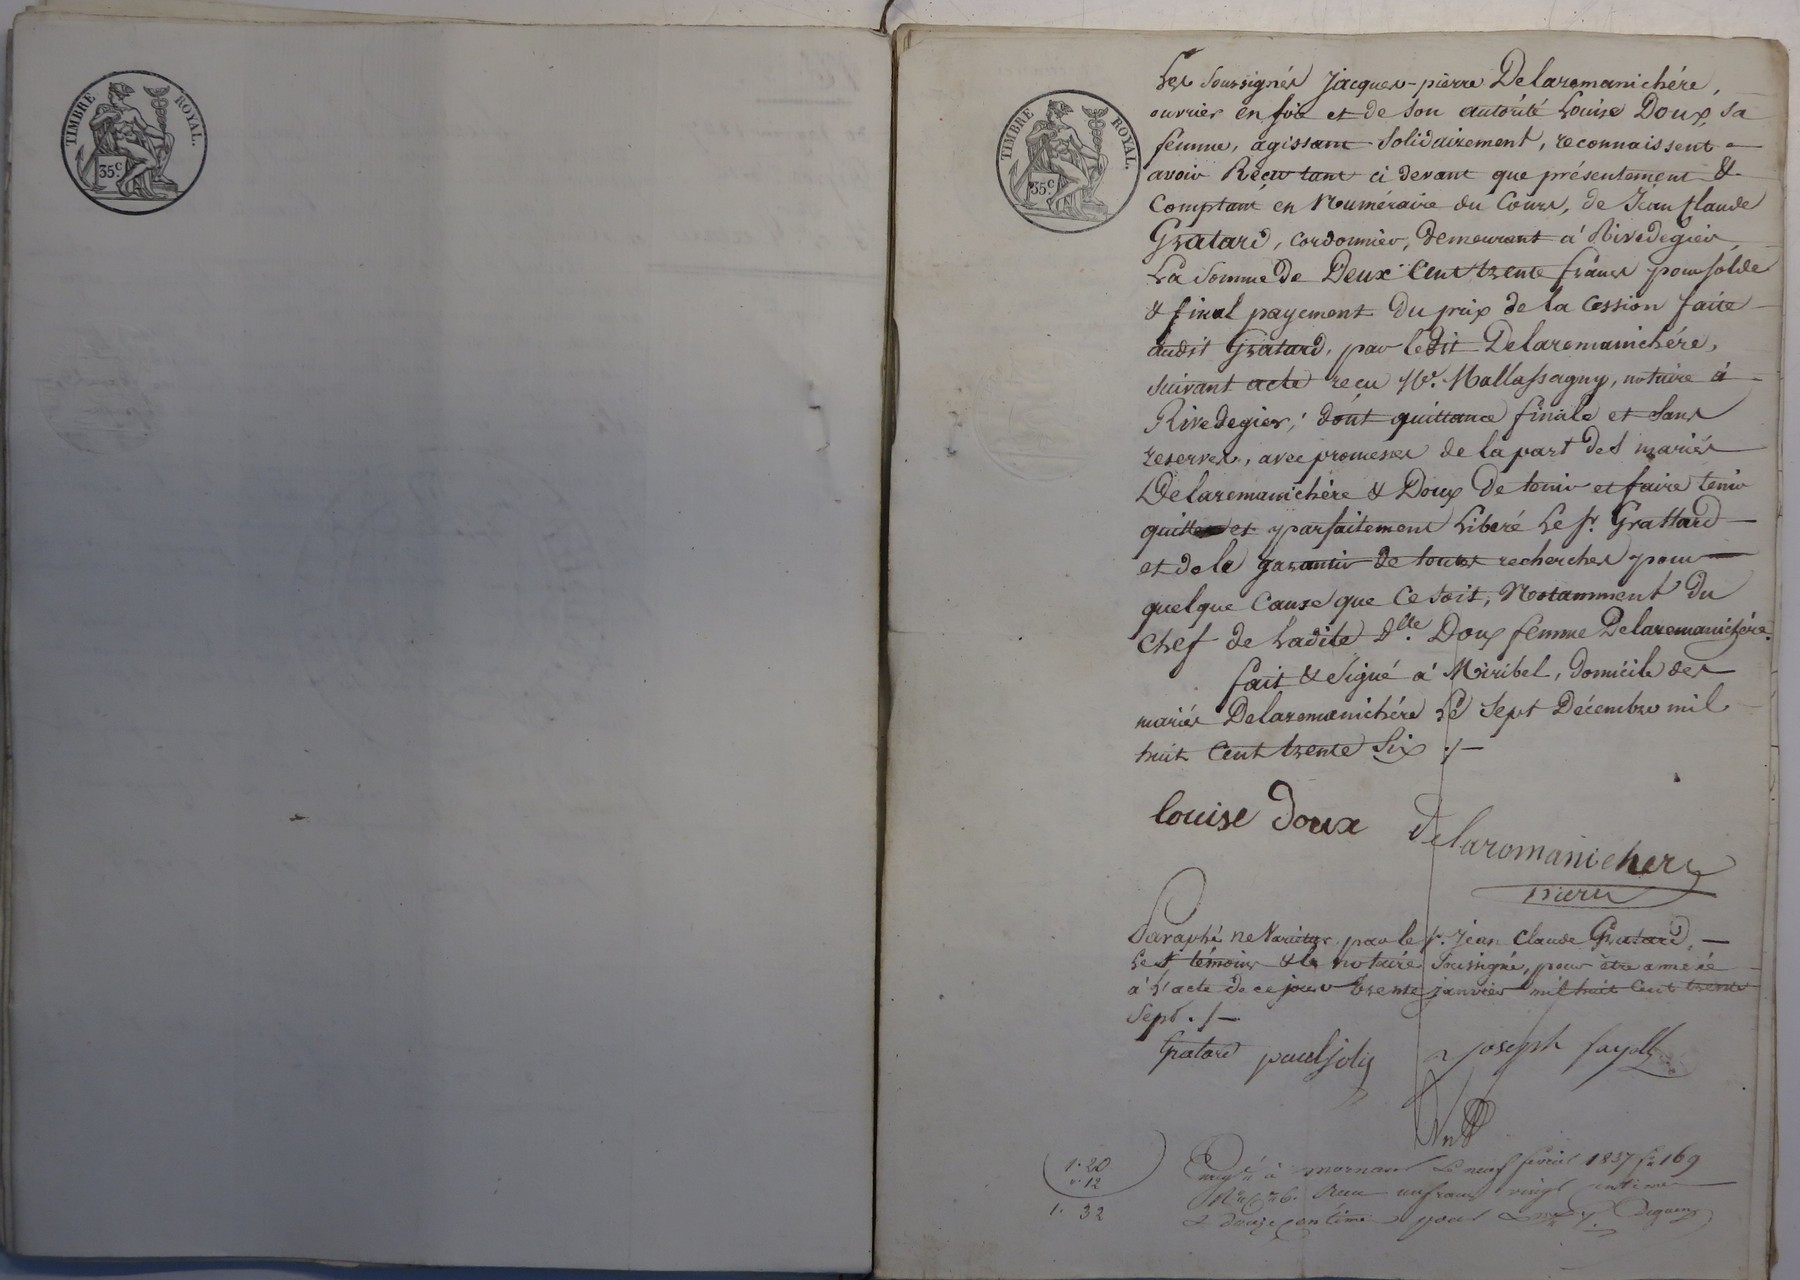 TIMBRE ROYAL.
35c
TIMBRE ROYAL.
35c
Les Soussignés Jacques-pierre Delaromanichére,
ouvrier en soie et de son autorité Louise Doux, sa
femme, agissant Solidairement, reconnaissent
avoir Reçu tant ci devant que présentement &
Comptant en Numéraire du Cours, de Jean Claude
Gratard, cordonnier, demeurant à Rivedegier,
La Somme de Deux Cent trente francs pour solde
& final payement du prix de la Cession faite
audit Gratard, par ledit Delaromanichére,
suivant acte reçu Me. Mallassagny, notaire à
Rivedegier; dont quittance finale et Sans
reserves, avec promesses de la part des mariés
Delaromanichére & Doux de tenir et faire tenir
quitte et parfaitement Libéré Le Sr. Grattard
et de le garantir de toutes recherches pour
quelque Cause que Ce soit, Notamment du
Chef de Ladite Dlle. Doux femme Delaromanichére.
fait & Signé à Miribel, domicile des
mariés Delaromanichére Le Sept Décembre mil
huit Cent trente Six ./.
louise doux Delaromanichere
pierre
Paraphé ne Varietur par le Sr. Jean Claude Gratard,
Les témoins & le notaire Soussigné, pour être annexé
à L'acte de ce jour trente janvier mil huit Cent trente
Sept ./.
Gratard paul joly joseph fayolle
1. 20
" 12
1. 32
à mornant Le neuf février 1837 fo 169
Reçu un franc vingt centimes
& douze centimes pour